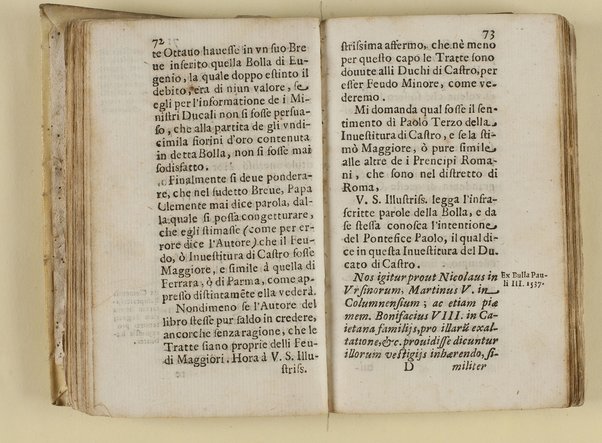 72
te Ottauo hauesse in vn suo Bre
ue inserito quella Bolla di Eu-
genio, la quale doppo estinto il
debito, era di niun valore, se
egli per l'informatione de i Mi-
nistri Ducali non si fosse persua-
so, che alla partita de gli vndi-
cimila fiorini d'oro contenuta
in detta Bolla, non si fosse mai
sodisfatto.
Finalmente si deue pondera-
re, che nel sudetto Breue, Papa
Clemente mai dice parola, dal-
la quale si possa congetturare,
che egli stimasse (come per er-
rore dice l'Autore) che il Feu-
do, ò Inuestitura di Castro fosse
Maggiore, e simile à quella di
Ferrara, ò di Parma, come ap-
presso distintamēte ella vederà.
Nondimeno se l'Autore del
libro stesse pur saldo in credere,
ancorche senza ragione, che le
Tratte siano proprie delli Feu-
di Maggiori. Hora à V. S. Illu-
striss.
73
strissima affermo, che nè meno
per questo capo le Tratte sono
douute alli Duchi di Castro, per
esser Feudo Minore, come ve-
deremo.
Mi domanda qual fosse il sen-
timento di Paolo Terzo della
Inuestitura di Castro, e se la sti-
mò Maggiore, ò pure simile
alle altre de i Prencipi Roma-
ni, che sono nel distretto di
Roma,
V. S. Illustriss. legga l'infra-
scritte parole della Bolla, e da
se stessa conosca l'intentione
del Pontefice Paolo, il qual di-
ce in questa Inuestitura del Du-
cato di Castro.
Nos igitur prout Nicolaus in
Vrsinorum, Martinus V. in
Columnensium; ac etiam piæ
mem. Bonifacius VIII. in Ca-
ietana familijs, pro illarū exal-
tatione, &c. prouidisse dicuntur
illorum vestigijs inhærendo, si-
D militer
Ex Bulla Pau-
li III. 1537.